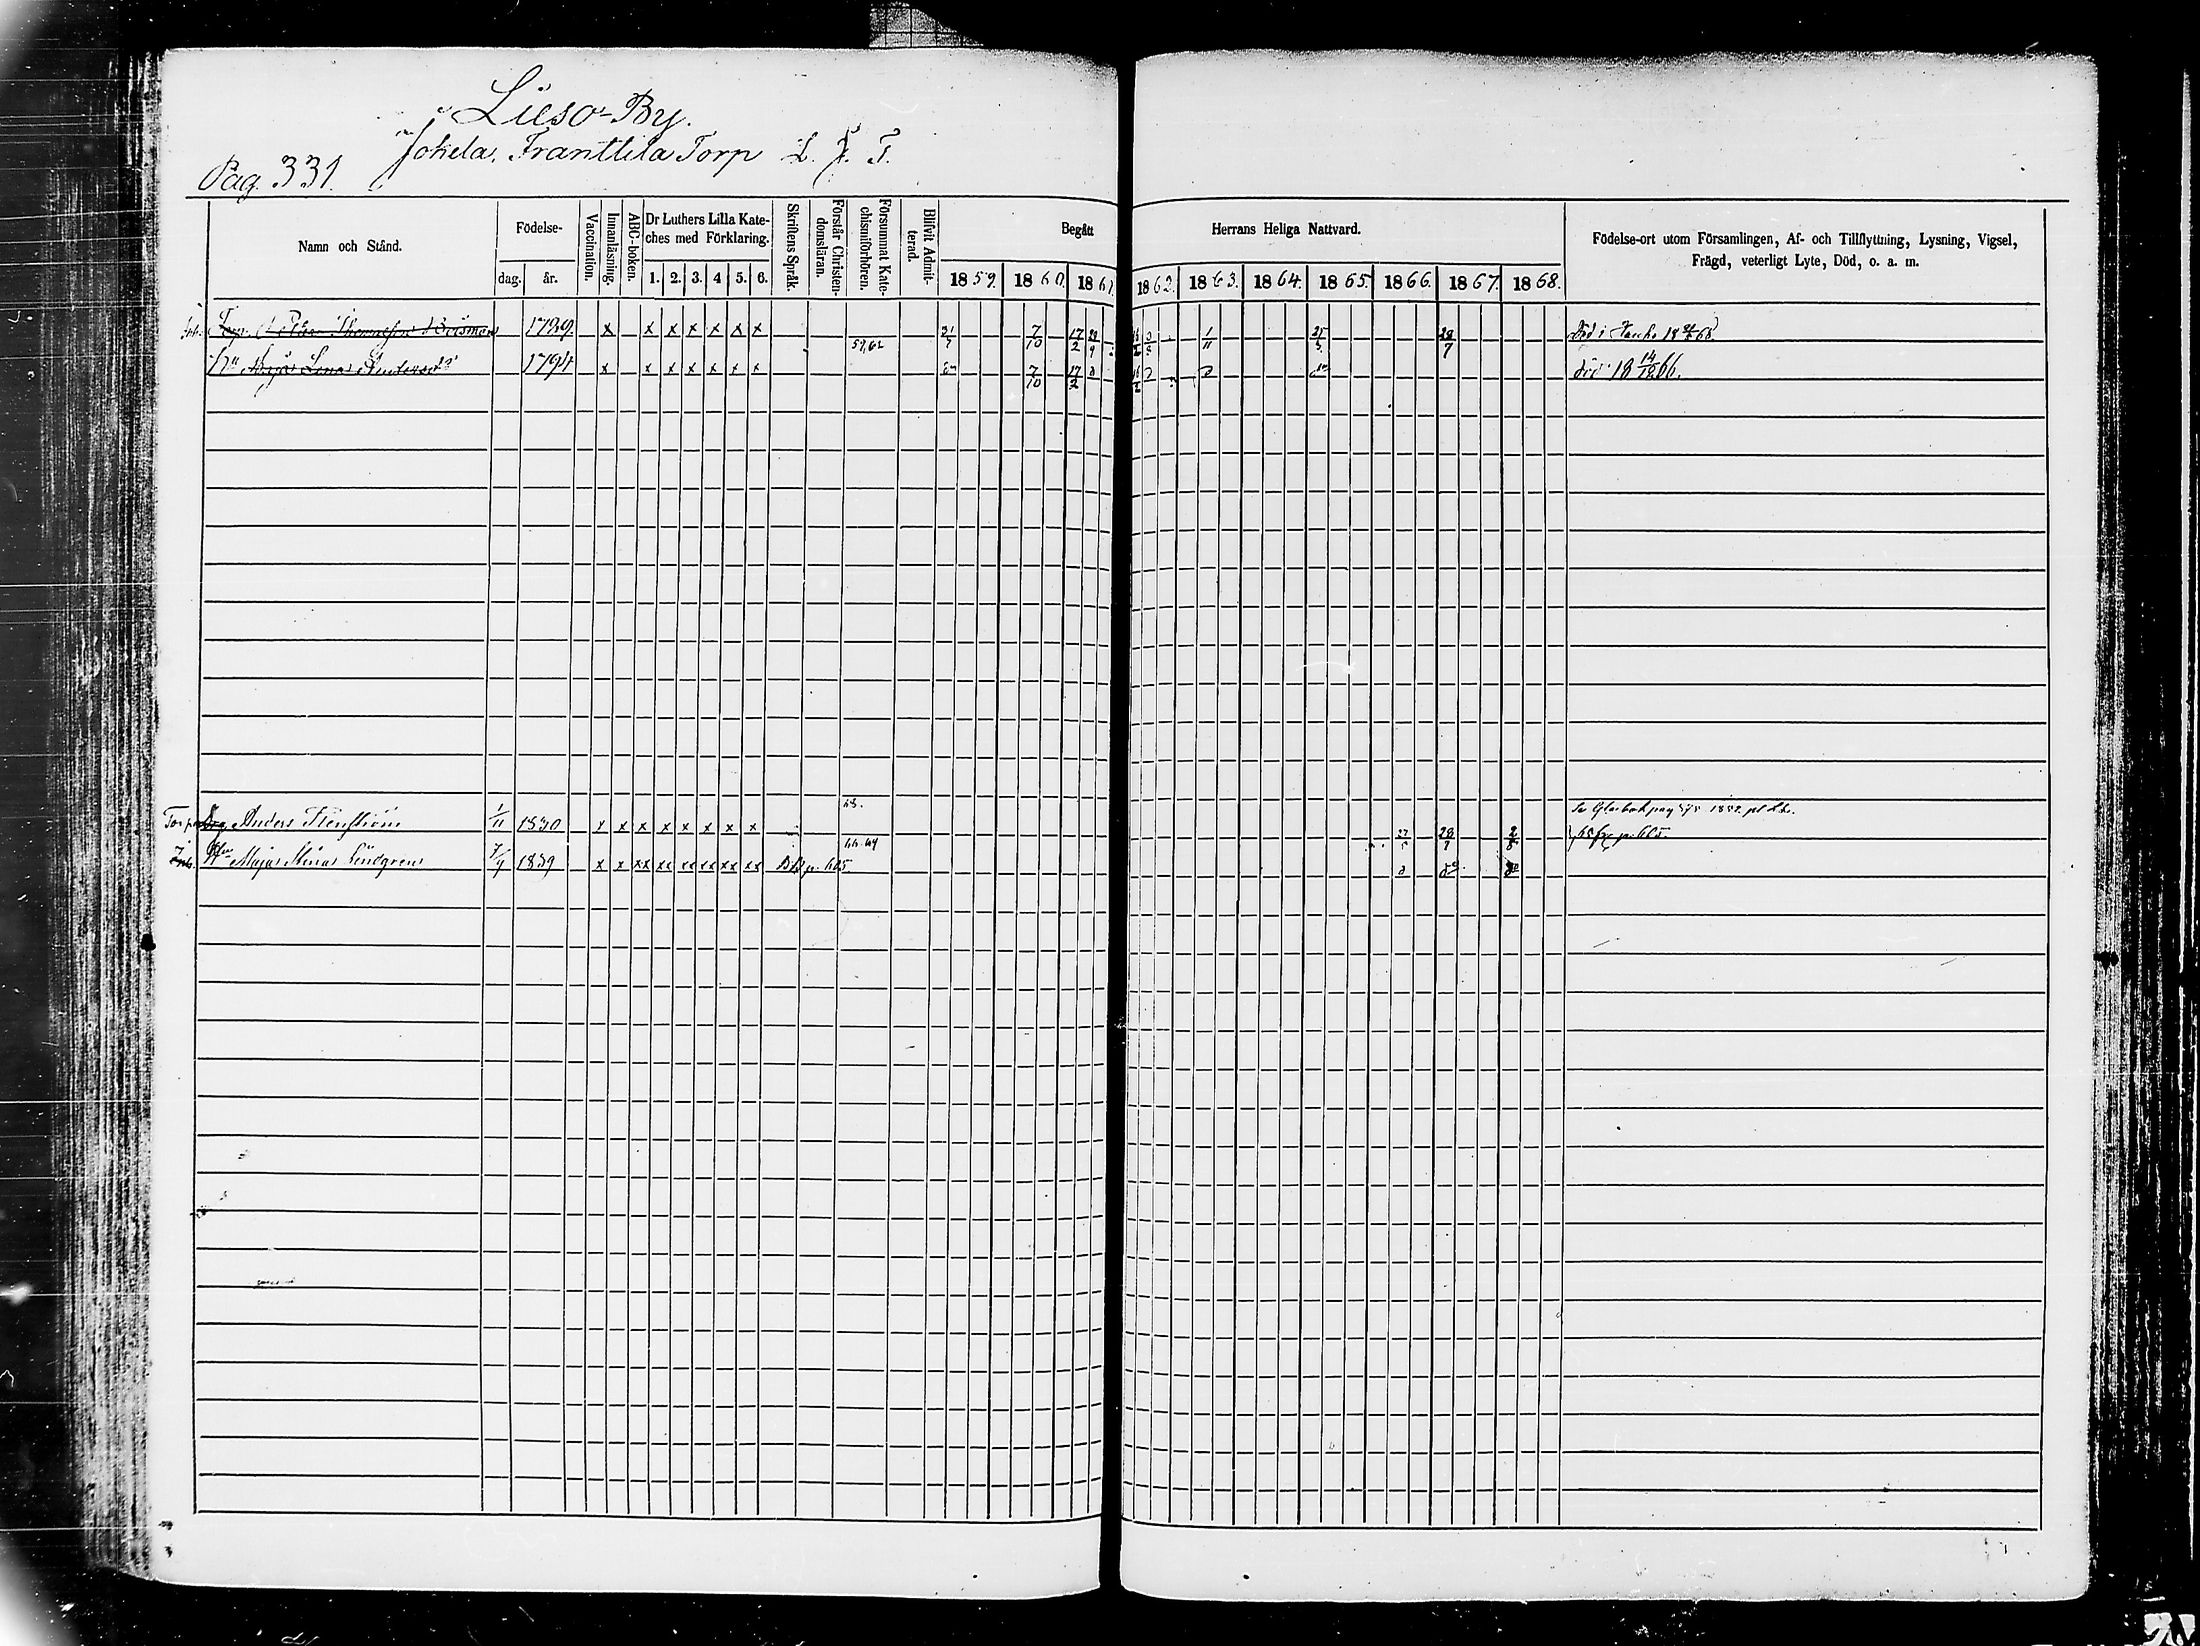 Lieso-By.
Jokela, Franttila Torp L. F. T.
Pag. 331.
Namn och Stånd.
Födelse-
dag.
år.
Vaccination.
Innanläsning.
ABC-boken.
Dr Luthers Lilla Kate-
ches med Förklaring.
1. 2. 3. 4 5. 6.
Skriftens Språk.
Förstår Christen-
domsläran.
Försummat Kate-
chismiförhören.
Blifvit Admit-
terad.
Begått Herrans Heliga Nattvard.
1859. 1860. 1861. 1862. 1863. 1864. 1865. 1866. 1867. 1868.
Födelse-ort utom Församlingen, Af- och Tillflyttning, Lysning, Vigsel,
Frägd, veterligt Lyte, Död, o. a. m.
Torp. Petter Thomasson 1789 x x x x x x x 7/10 17/2 1/11 28/7 Död i
59,62
Hu Maja Lena Andersd 1794 x x x x x x x 7/10 17/2 död 18 14/12 66.
68.
Anders Stenström 1/11 1830 x x x x x x x x 28/7 2/8
66.64
Maja Stina Lindgren 7/4 1839 x x xx xx xx xx xx xx p. 605